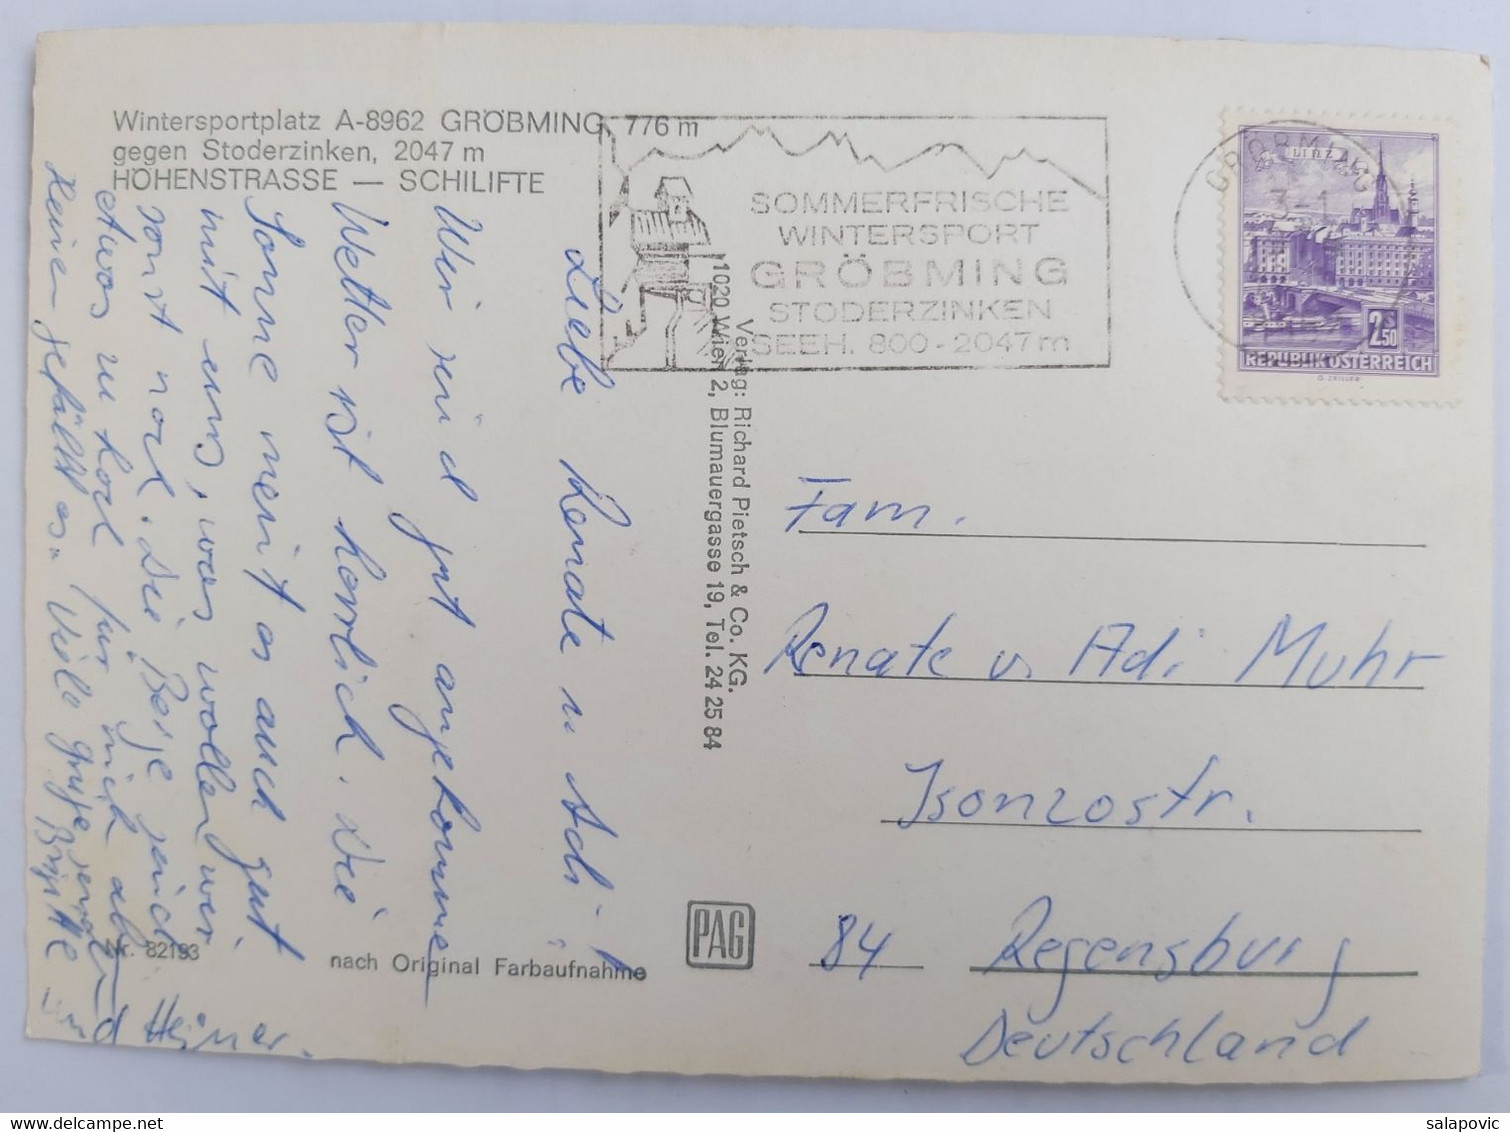 Wintersportplatz A-8962 GRÖBMING, 776 m
gegen Stoderzinken, 2047 m
HÖHENSTRASSE — SCHILIFTE
SOMMERFRISCHE
WINTERSPORT
GRÖBMING
STODERZINKEN
SEEH. 800 - 2047 m
GRÖBMING
3-1
LINZ
2 S 50
REPUBLIK ÖSTERREICH
Verlag: Richard Pietsch & Co. KG.
1020 Wien 2, Blumauergasse 19, Tel. 24 25 84
Liebe Renate u Adi!
Wir sind gut angekommen
Wetter ist herrlich. Die
Sonne meint es auch gut
mit uns, was wollen wir
sonst noch. Die Berge sind
etwas zu hoch für mich aber
Heiner gefällt es. Viele Grüße senden
Brigitte
und Heiner.
Fam.
Renate u Adi Muhr
Isonzostr.
84 Regensburg
Deutschland
PAG
Nr. 82193
nach Original Farbaufnahme
salapovic